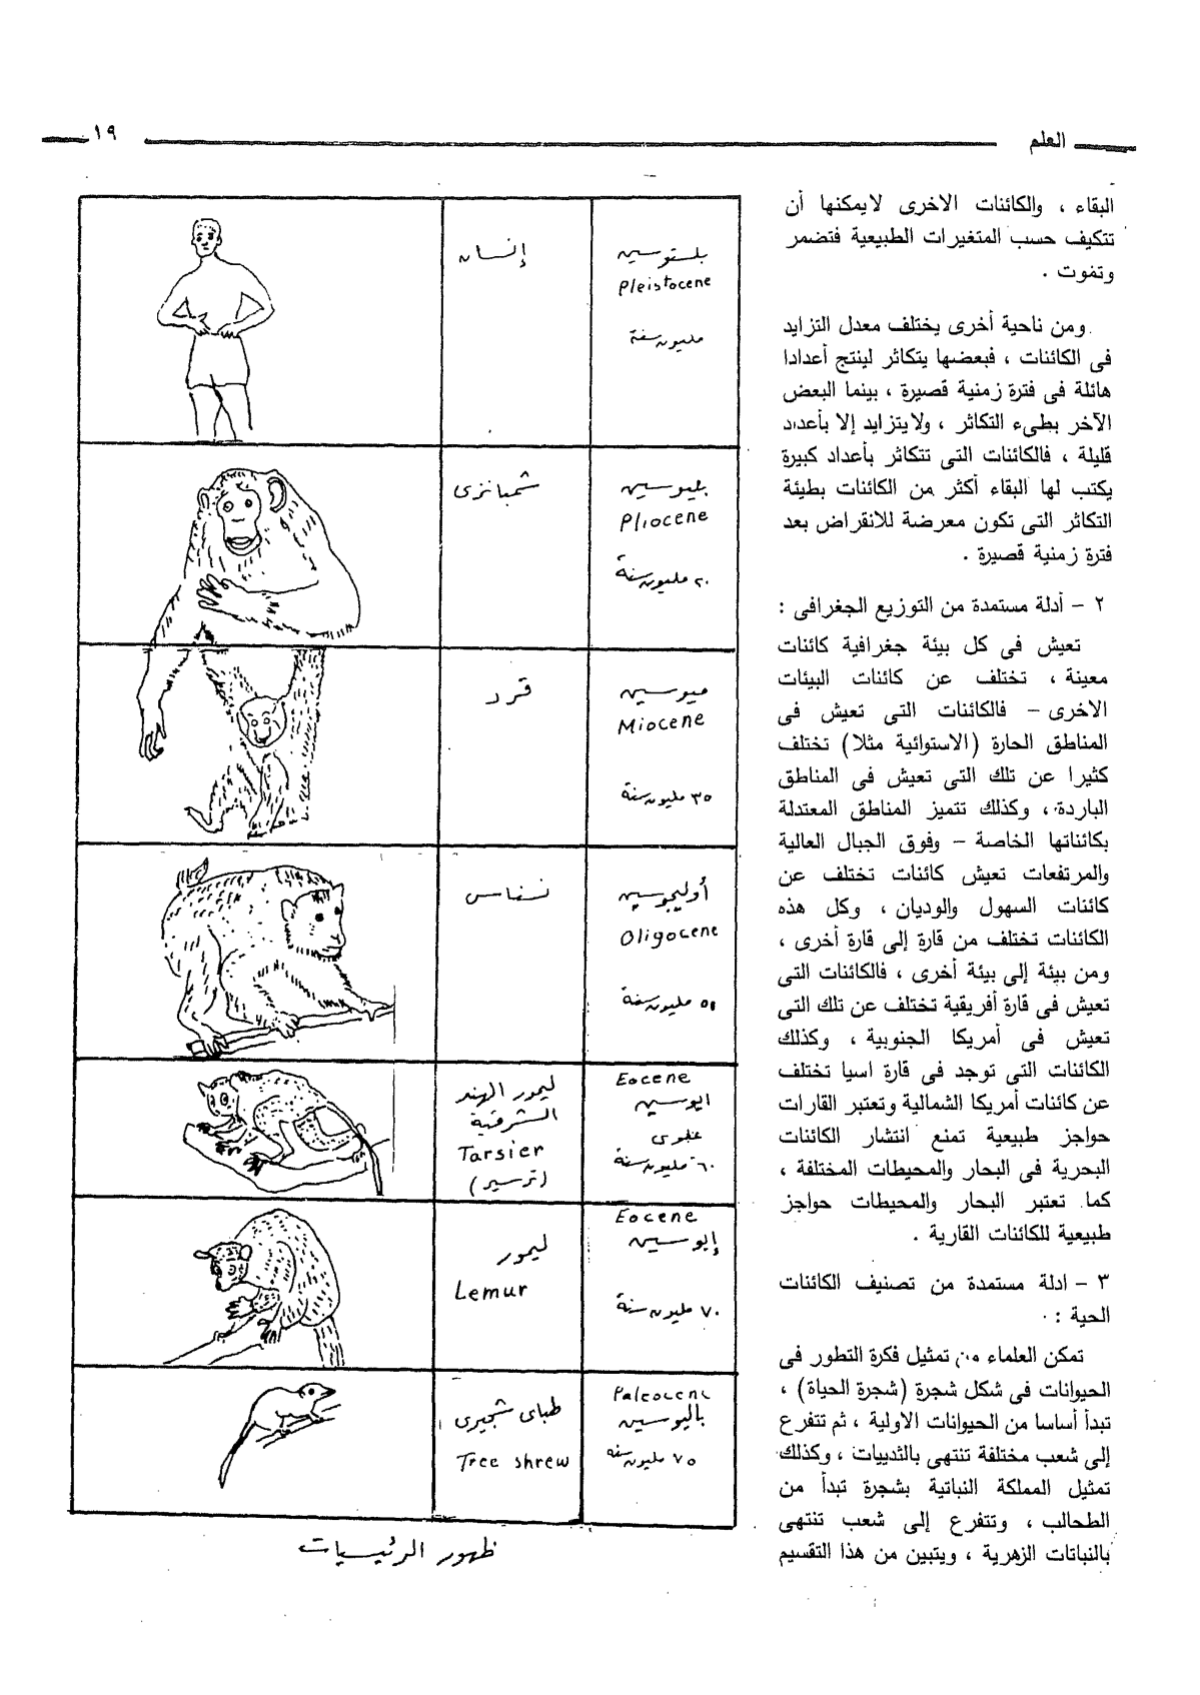 العلم
١٩
البقاء ، والكائنات الاخرى لايمكنها أن
تتكيف حسب المتغيرات الطبيعية فتضمر
وتموت .
ومن ناحية أخرى يختلف معدل التزايد
فى الكائنات ، فبعضها يتكاثر لينتج أعدادا
هائلة فى فترة زمنية قصيرة ، بينما البعض
الآخر بطىء التكاثر ، ولايتزايد إلا بأعداد
قليلة ، فالكائنات التى تتكاثر بأعداد كبيرة
يكتب لها البقاء أكثر من الكائنات بطيئة
التكاثر التى تكون معرضة للانقراض بعد
فترة زمنية قصيرة .
٢ – أدلة مستمدة من التوزيع الجغرافى :
تعيش فى كل بيئة جغرافية كائنات
معينة ، تختلف عن كائنات البيئات
الاخرى – فالكائنات التى تعيش فى
المناطق الحارة (الاستوائية مثلا) تختلف
كثيرا عن تلك التى تعيش فى المناطق
الباردة ، وكذلك تتميز المناطق المعتدلة
بكائناتها الخاصة – وفوق الجبال العالية
والمرتفعات تعيش كائنات تختلف عن
كائنات السهول والوديان ، وكل هذه
الكائنات تختلف من قارة إلى قارة أخرى ،
ومن بيئة إلى بيئة أخرى ، فالكائنات التى
تعيش فى قارة أفريقية تختلف عن تلك التى
تعيش فى أمريكا الجنوبية ، وكذلك
الكائنات التى توجد فى قارة اسيا تختلف
عن كائنات أمريكا الشمالية وتعتبر القارات
حواجز طبيعية تمنع انتشار الكائنات
البحرية فى البحار والمحيطات المختلفة ،
كما تعتبر البحار والمحيطات حواجز
طبيعية للكائنات القارية .
٣ – ادلة مستمدة من تصنيف الكائنات
الحية :
تمكن العلماء من تمثيل فكرة التطور فى
الحيوانات فى شكل شجرة (شجرة الحياة) ،
تبدأ أساسا من الحيوانات الاولية ، ثم تتفرع
إلى شعب مختلفة تنتهى بالثدييات ، وكذلك
تمثيل المملكة النباتية بشجرة تبدأ من
الطحالب ، وتتفرع إلى شعب تنتهى
بالنباتات الزهرية ، ويتبين من هذا التقسيم
بلستوسين
Pleistocene
مليون سنة
إنسان
بليوسين
Pliocene
٢٠ مليون سنة
شمبانزى
ميوسين
Miocene
٣٥ مليون سنة
قرد
أوليجوسين
Oligocene
٥٥ مليون سنة
نسناس
Eocene
ايوسين
علوى
٦٠ مليون سنة
ليمور الهند
الشرقية
Tarsier
(ترسير)
Eocene
إيوسين
٧٠ مليون سنة
ليمور
Lemur
Paleocene
باليوسين
٧٥ مليون سنه
طباى شجيرى
Tree shrew
ظهور الرئيسيات